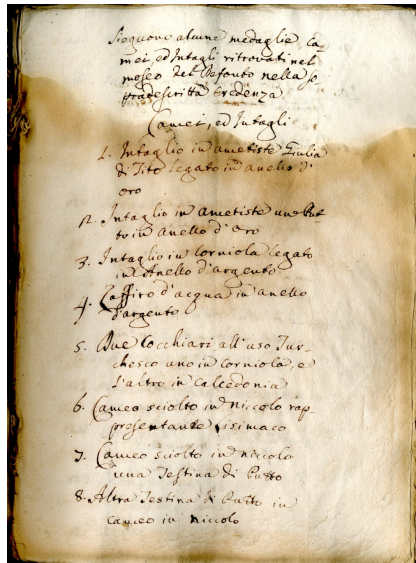 Sieguono alcune medaglie, Ca-
mei, ed Intagli ritrovati nel
moseo del Defonto nella so
pradescritta Credenza
Camei, ed Intagli
1. Intaglio in ametiste Giulia
di Tito legato in anello d'
oro
2. Intaglio in ametiste un But
to in anello d'oro
3. Intaglio in Corniola legato
in Anello d'argento
4. Zaffiro d'acqua in anello
d'argento
5. Due Cocchiari all'uso Tur-
chesco uno in corniola, e
l'altro in calcedonia
6. Cameo sciolto in Niccolo rap-
presentante Lisimaco
7. Cameo sciolto in niccolo
una Testina di Putto
8. Altra Testina di Putto in
cameo in Niccolo